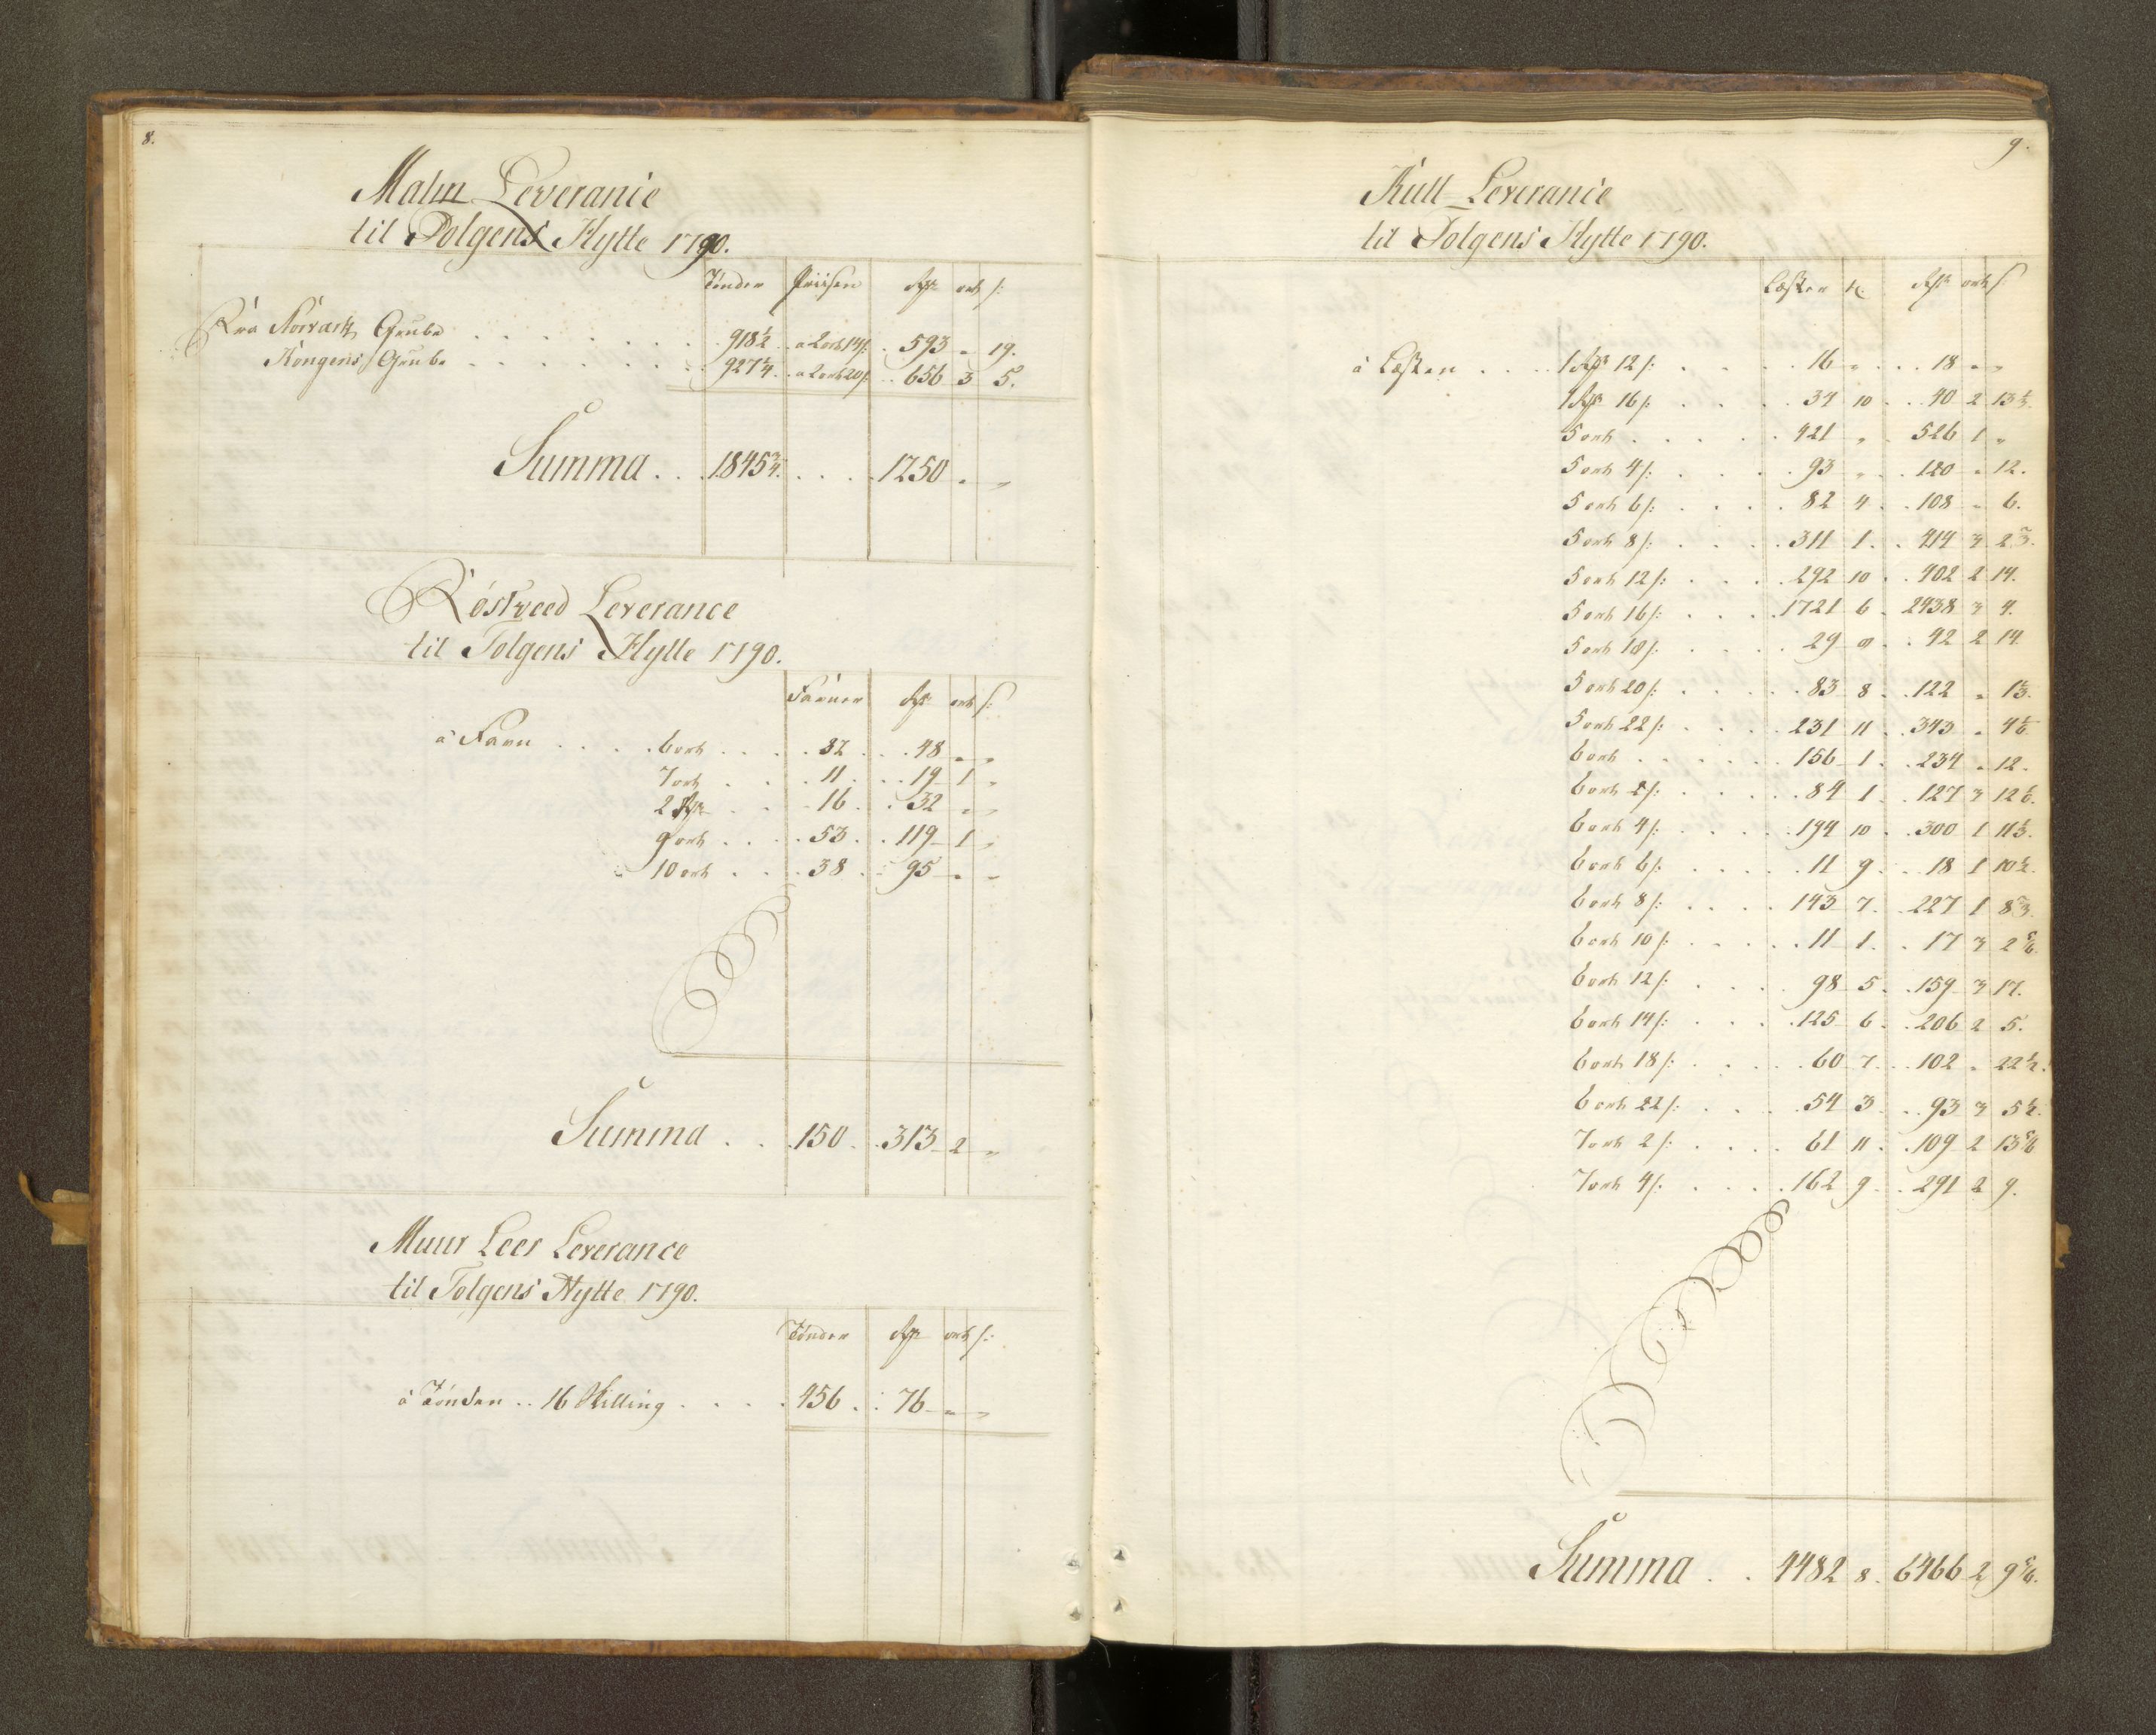 8.
Malm Leverance
til Tolgens Hytte 1790.
Tönder Priisen Rdr ort s:
Fra Storvartz Grube . . . 918½ . a 2 ort 14 s: . 593 „ 19.
Kongens Grube . . . 927¼ . a 2 ort 20 s: . 656 3 5.
Summa . . . 1845¾ . . . 1250 „ „
Röstveed Leverance
til Tolgens Hytte 1790.
Favner Rdr ort s:
à Favn . . . 6 ort . . . 32 . . 48 „ „
7 ort . . . 11 . . 19 1 „
2 Rdr . . . 16 . . 32 „ „
9 ort . . . 53 . . 119 1 „
10 ort . . . 38 . . 95 „ „
Summa . . . 150 . . 313 2 „
Muur Leer Leverance
til Tolgens Hytte 1790.
Tönder Rdr ort s:
à Tönden . . 16 Skilling . . . . 456 . . 76 „ „
9.
Kull Leverance
til Tolgens Hytte 1790.
Læster tr. Rdr ort s
à Læsten . . . 1 Rdr 12 s: . . . 16 „ . . 18 „ „
1 Rdr 16 s: . . . 34 10 . . 40 2 13⅓.
5 ort . . . 421 „ . 526 1 „
5 ort 4 s: . . . 93 „ . . 120 „ 12.
5 ort 6 s: . . . 82 4 . . 108 „ 6.
5 ort 8 s: . . . 311 1 . . 414 3 2⅔.
5 ort 12 s: . . . 292 10 . . 402 2 14.
5 ort 16 s: . . . 1721 6 . 2438 3 4.
5 ort 18 s: . . . 29 8 . . 42 2 14.
5 ort 20 s: . . . 83 8 . . 122 „ 1⅓.
5 ort 22 s: . . . 231 11 . . 343 „ 4⅙.
6 ort . . . 156 1 . . 234 „ 12.
6 ort 2 s: . . . 84 1 . . 127 3 12⅙.
6 ort 4 s: . . . 194 10 . . 300 1 11⅓.
6 ort 6 s: . . . 11 9 . . 18 1 10½.
6 ort 8 s: . . . 143 7 . . 227 1 8⅔.
6 ort 10 s: . . . 11 1 . . 17 3 2⅚.
6 ort 12 s: . . . 98 5 . . 159 3 17.
6 ort 14 s: . . . 125 6 . . 206 2 5.
6 ort 18 s: . . . 60 7 . . 102 „ 22½.
6 ort 22 s: . . . 54 3 . . 93 3 5½.
7 ort 2 s: . . . 61 11 . . 109 2 13⅚
7 ort 4 s: . . . 162 9 . . 291 2 9.
Summa . . 4482 8 . 6466 2 9⅚.